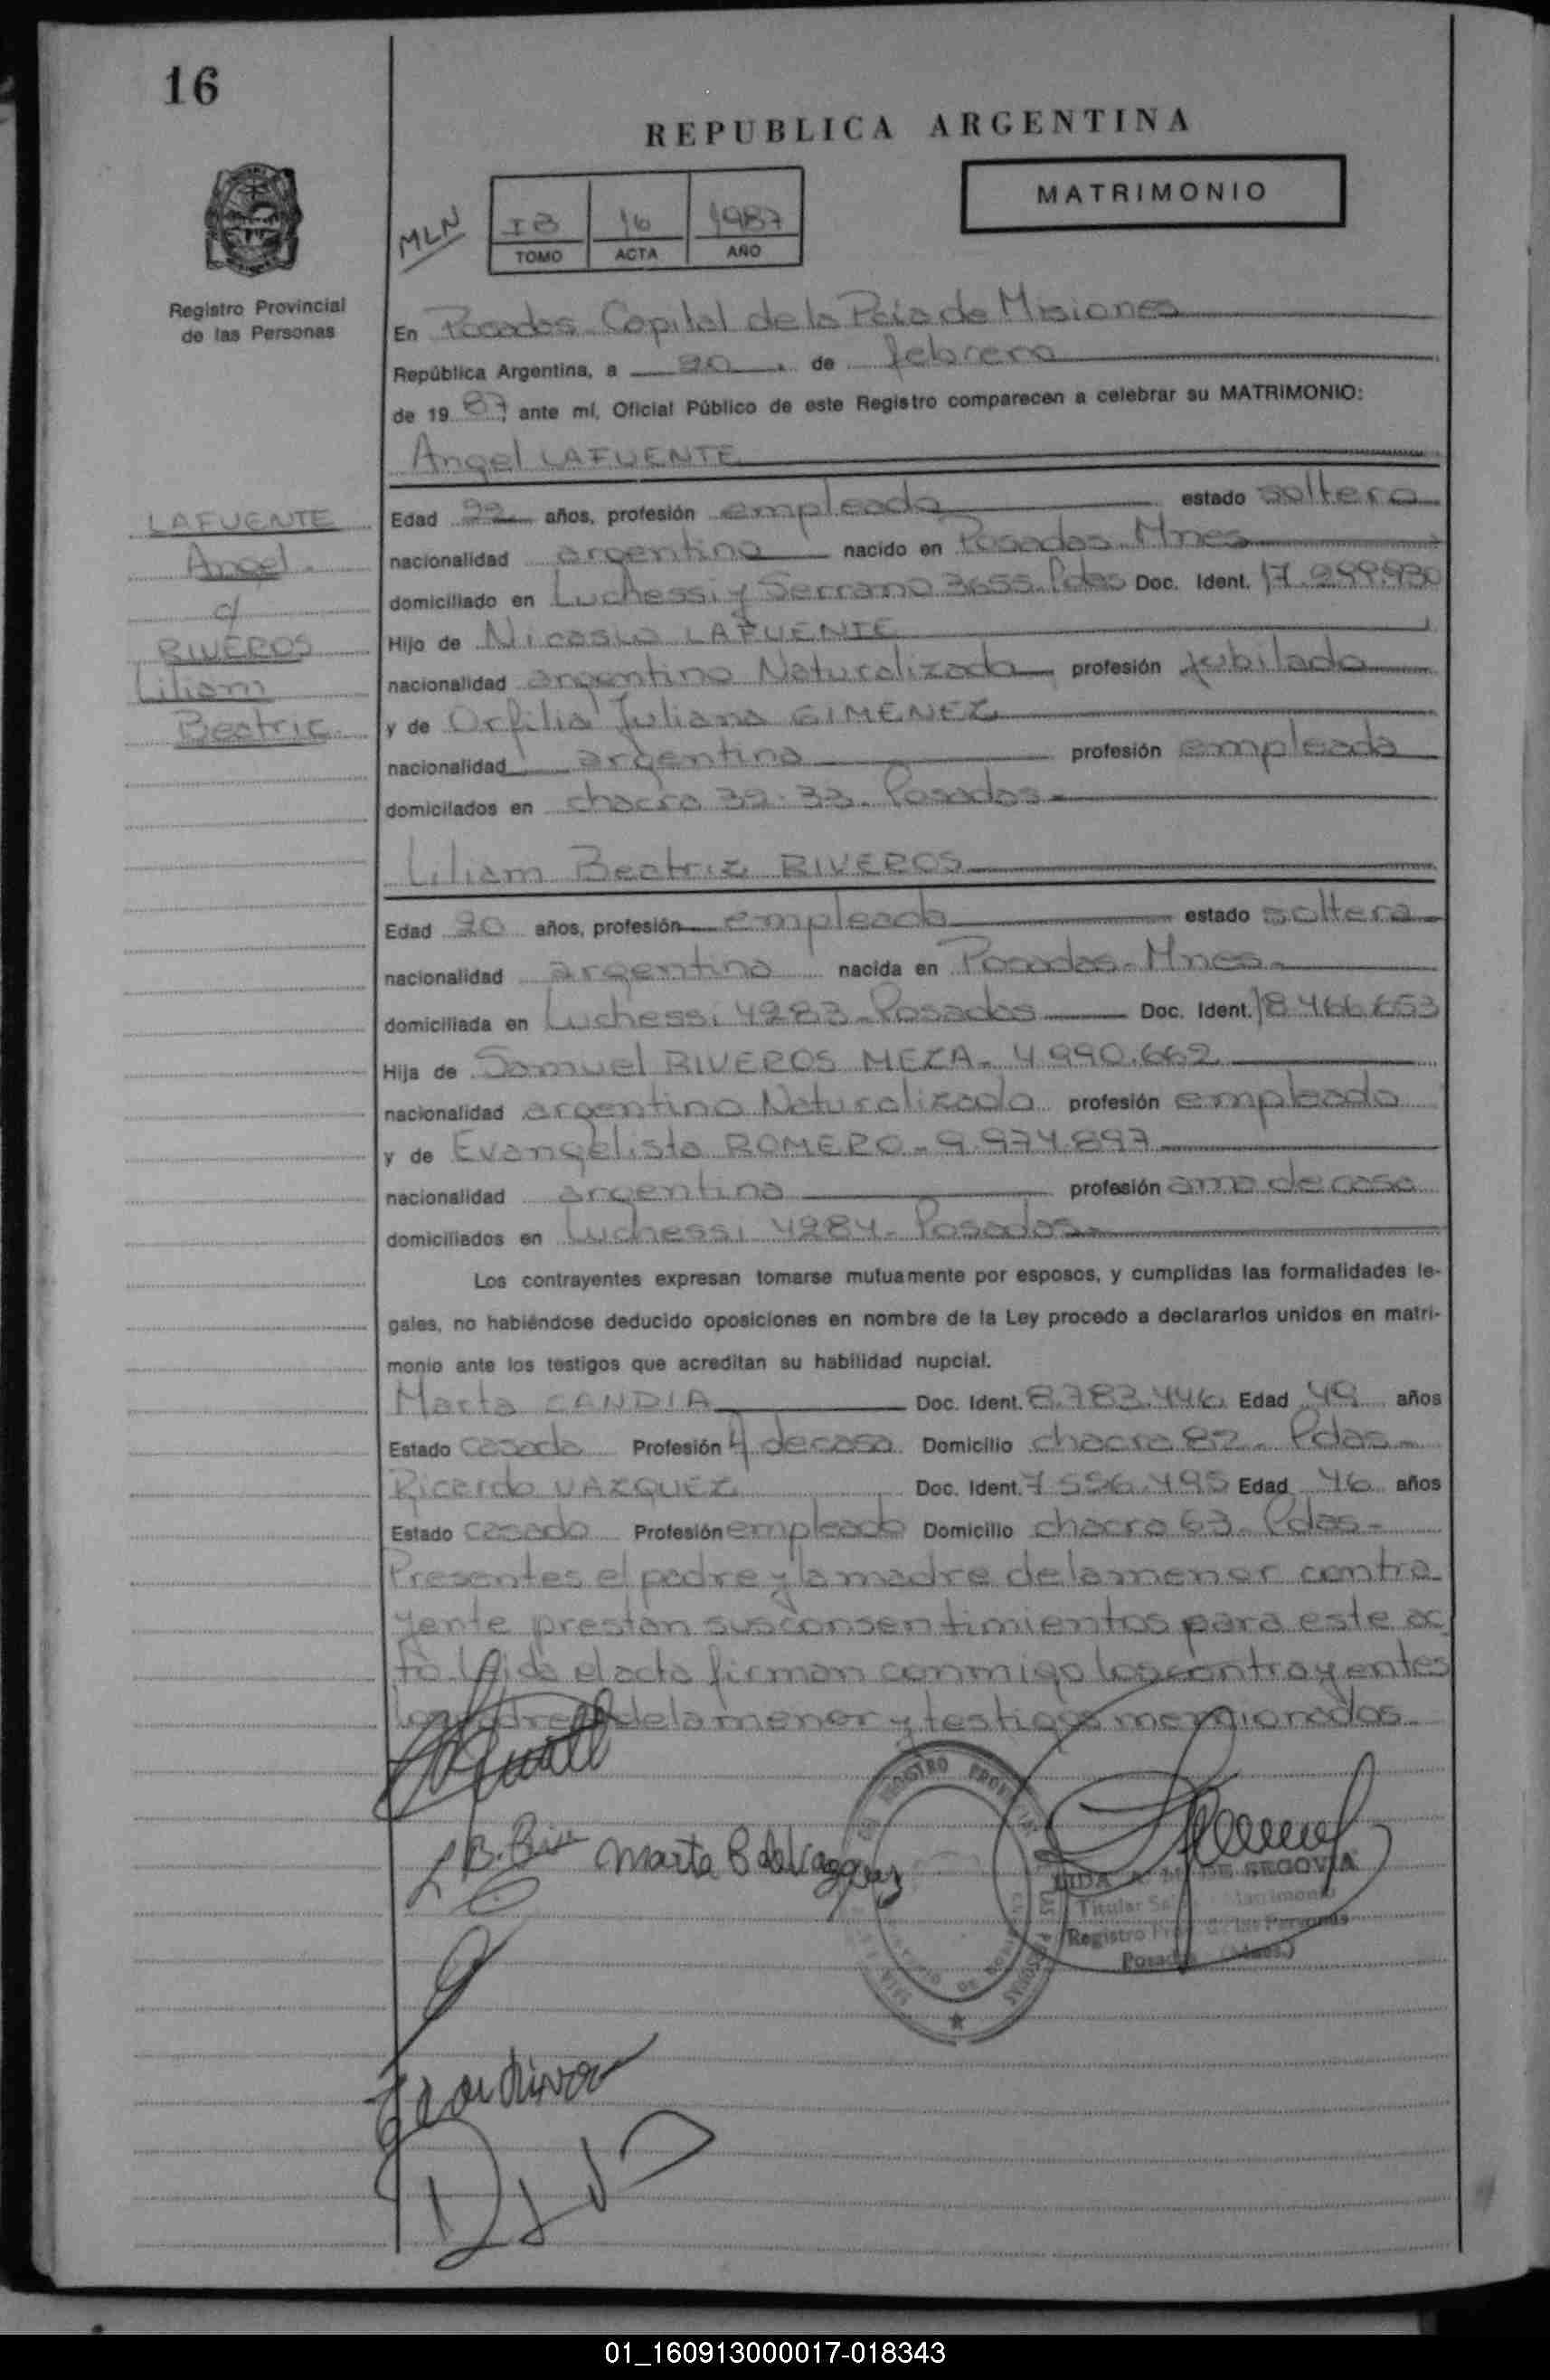 16
REPUBLICA ARGENTINA
MATRIMONIO
MLN
IB 16 1987
TOMO ACTA AÑO
Registro Provincial
de las Personas
En Posadas Capital de la Pcia de Misiones
República Argentina, a 20 de febrero
de 1987, ante mí, Oficial Público de este Registro comparecen a celebrar su MATRIMONIO:
Angel LAFUENTE
LAFUENTE
Angel.
c/
RIVEROS
Liliam
Beatriz
Edad 22 años, profesión empleado estado soltero
nacionalidad argentina nacido en Posadas Mnes
domiciliado en Luchessi y Serrano 3655 Pdas Doc. Ident. 17.299.930
Hijo de Nicasio LAFUENTE
nacionalidad argentino Naturalizado profesión jubilado
y de Orfilia Juliana GIMENEZ
nacionalidad argentina profesión empleada
domicilados en chacra 32-33. Posadas-
Liliam Beatriz RIVEROS
Edad 20 años, profesión empleada estado soltera
nacionalidad argentina nacida en Posadas-Mnes-
domiciliada en Luchessi 4283-Posadas Doc. Ident. 18.466.653
Hija de Samuel RIVEROS MEZA- 4.990.662
nacionalidad argentino Naturalizado profesión empleado
y de Evangelista ROMERO-9.974.897
nacionalidad argentina profesión ama de casa
domiciliados en Luchessi 4284-Posadas-
Los contrayentes expresan tomarse mutuamente por esposos, y cumplidas las formalidades le-
gales, no habiéndose deducido oposiciones en nombre de la Ley procedo a declararlos unidos en matri-
monio ante los testigos que acreditan su habilidad nupcial.
Marta CANDIA Doc. Ident. 8.783.446 Edad 49 años
Estado casada Profesión A de casa Domicilio chacra 82- Pdas-
Ricardo VAZQUEZ Doc. Ident. 7.556.495 Edad 46 años
Estado casado Profesión empleado Domicilio chacra 63- Pdas-
Presentes el padre y la madre de la menor contra
yente prestan sus consentimientos para este ac
to Leida el acta firman conmigo los contrayentes
los padres de la menor y testigos mencionados-
L B. Riv Marta B de Vazquez
REGISTRO PROVINCIAL DE LAS PERSONAS
DE SEGOVIA
Titular Matrimonio
Registro Prov. de las Personas
Posadas (Mnes.)
01_160913000017-018343